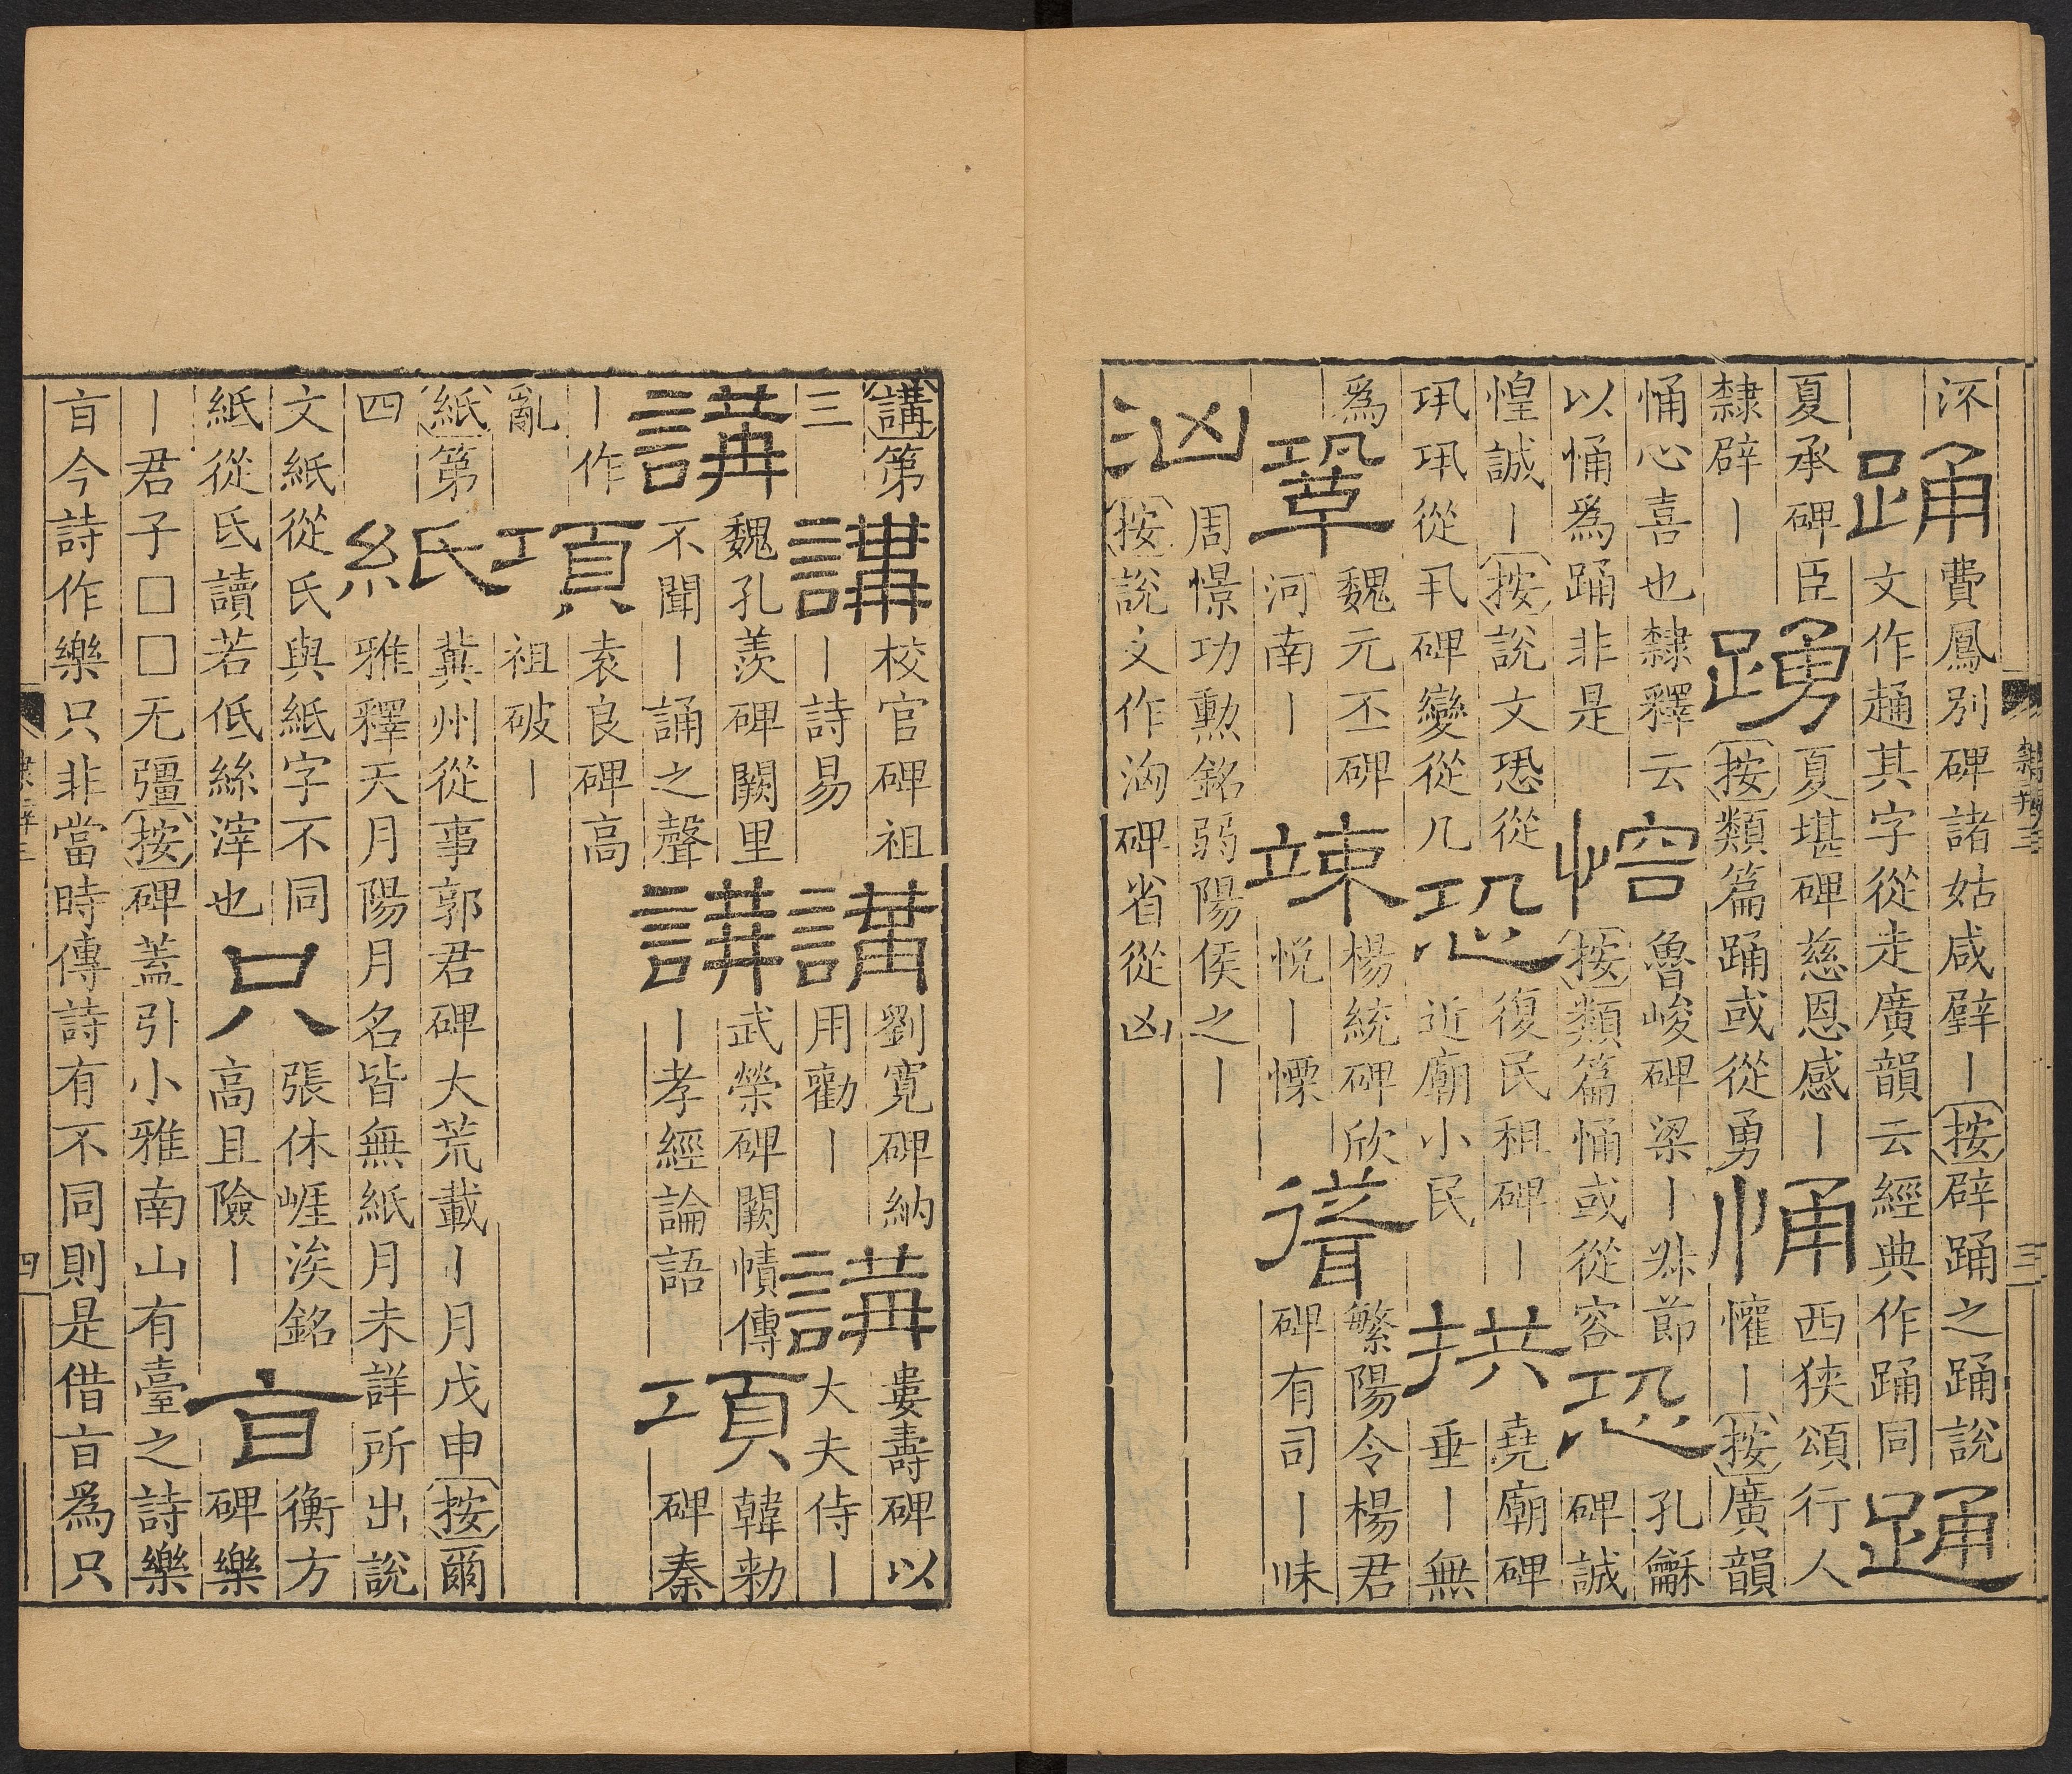 隸辨三
三
泝
踊
費鳳別碑諸姑咸擗丨按擗踊之踊說
文作踊其字從走廣韻云經典作踊同
踊
夏承碑臣
隸辟丨
踴
夏堪碑慈恩感丨
按類篇踊或從勇
悀
西狹頌行人
懽丨按廣韻
悀心喜也隸釋云
以悀爲踊非是
㤟
魯峻碑梁丨恘節
按類篇悀或從容
恐
孔龢
碑誠
惶誠丨按說文恐從
巩巩從丮碑變從几
恐
復民租碑丨
近廟小民
拱
堯廟碑
垂丨無
爲
鞏
魏元丕碑
河南丨
竦
楊統碑欣
悅丨慄
聳
繁陽令楊君
碑有司丨昧
洶
周憬功勲銘弱陽侯之丨
按說文作洶碑省從凶
講第
三
講
校官碑祖
丨詩易
講
劉寬碑納
用勸丨
講
婁壽碑以
大夫侍丨
講
魏孔羨碑闕里
不聞丨誦之聲
講
武榮碑闕幘傳
丨孝經論語
項
韓勑
碑秦
丨作
亂
項
袁良碑高
祖破丨
紙第
四
紙
冀州從事郭君碑大荒載丨月戊申按爾
雅釋天月陽月名皆無紙月未詳所出說
文紙從氏與紙字不同
紙從氐讀若低絲滓也
只
張休崕涘銘
高且險丨
㫖
衡方
碑樂
丨君子□□无彊按碑蓋引小雅南山有臺之詩樂
㫖今詩作樂只非當時傳詩有不同則是借㫖爲只
四